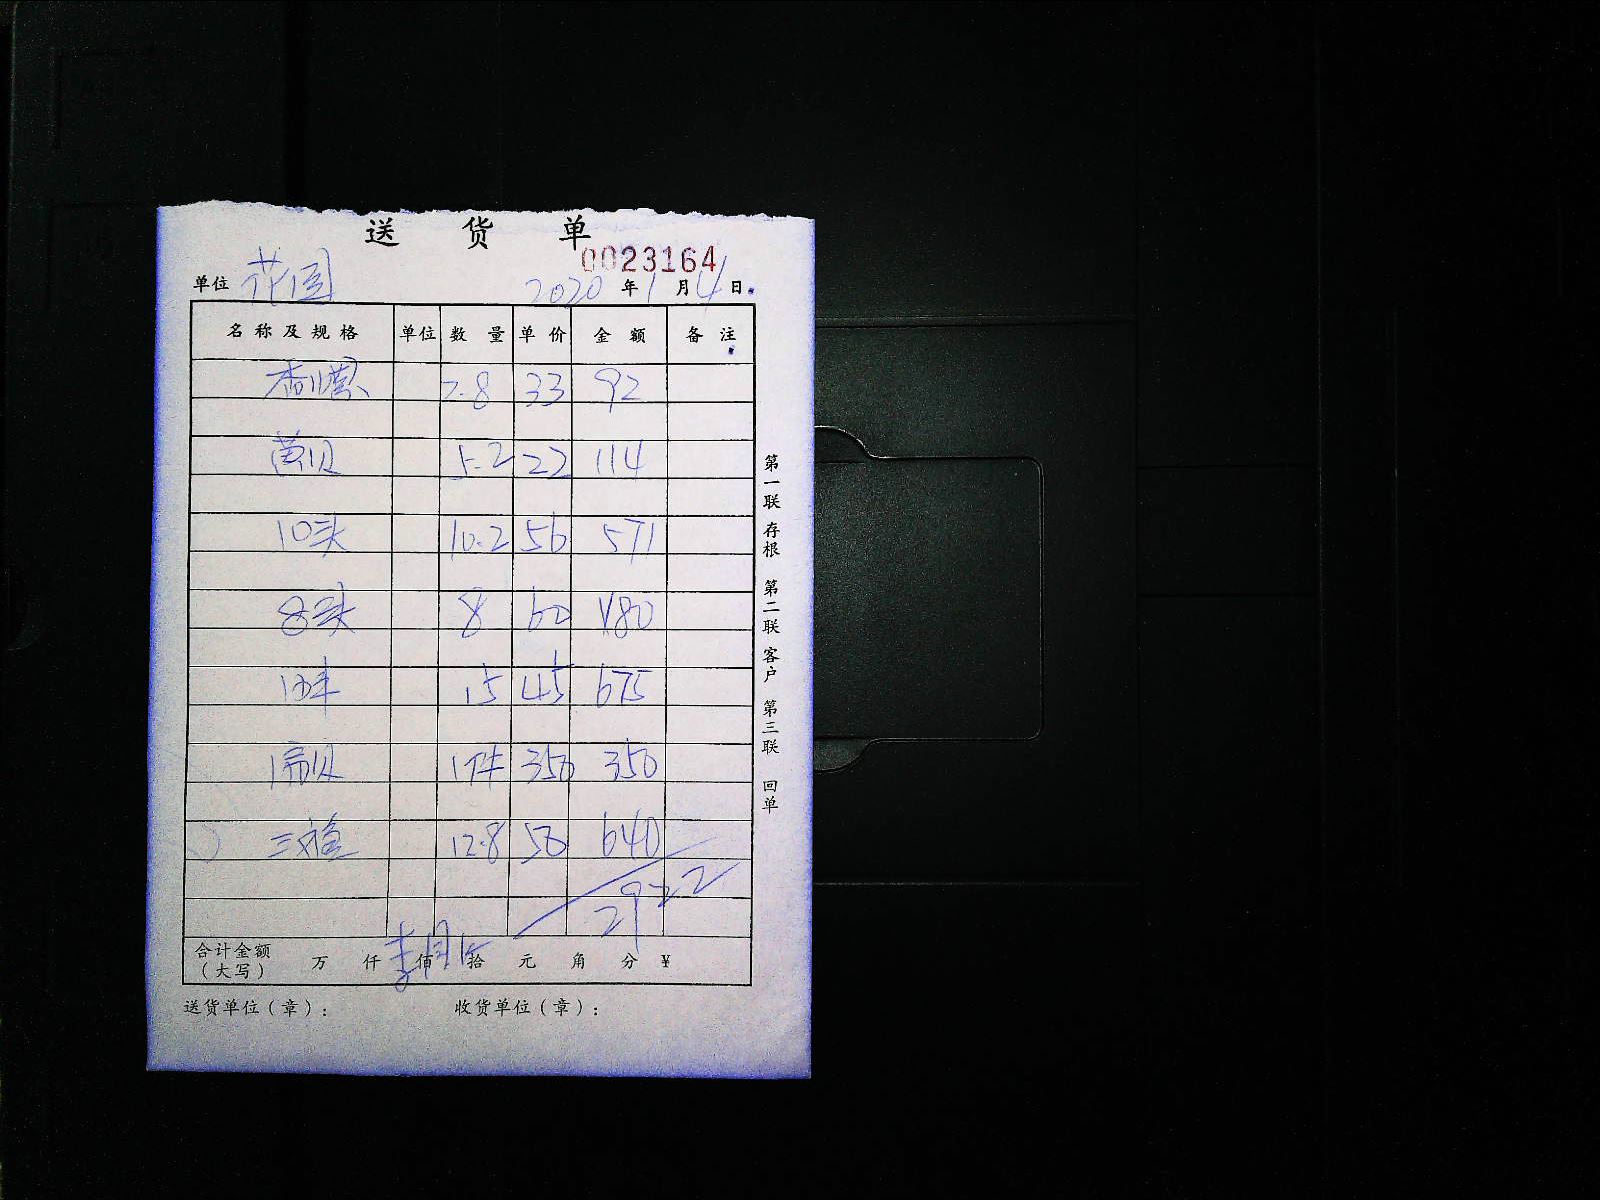 送货单
0023164
单位 花园 2020 年 1 月 4 日
名称及规格 单位 数量 单价 金额 备注
香螺 2.8 33 92
黄贝 5.2 22 114
10头 10.2 56 571
8头 8 60 480
15 45 675
扇贝 1件 350 350
三文鱼 12.8 50 640
2922
合计金额（大写） 万 仟 佰 拾 元 角 分 ¥
送货单位（章）： 收货单位（章）：
第一联 存根 第二联 客户 第三联 回单